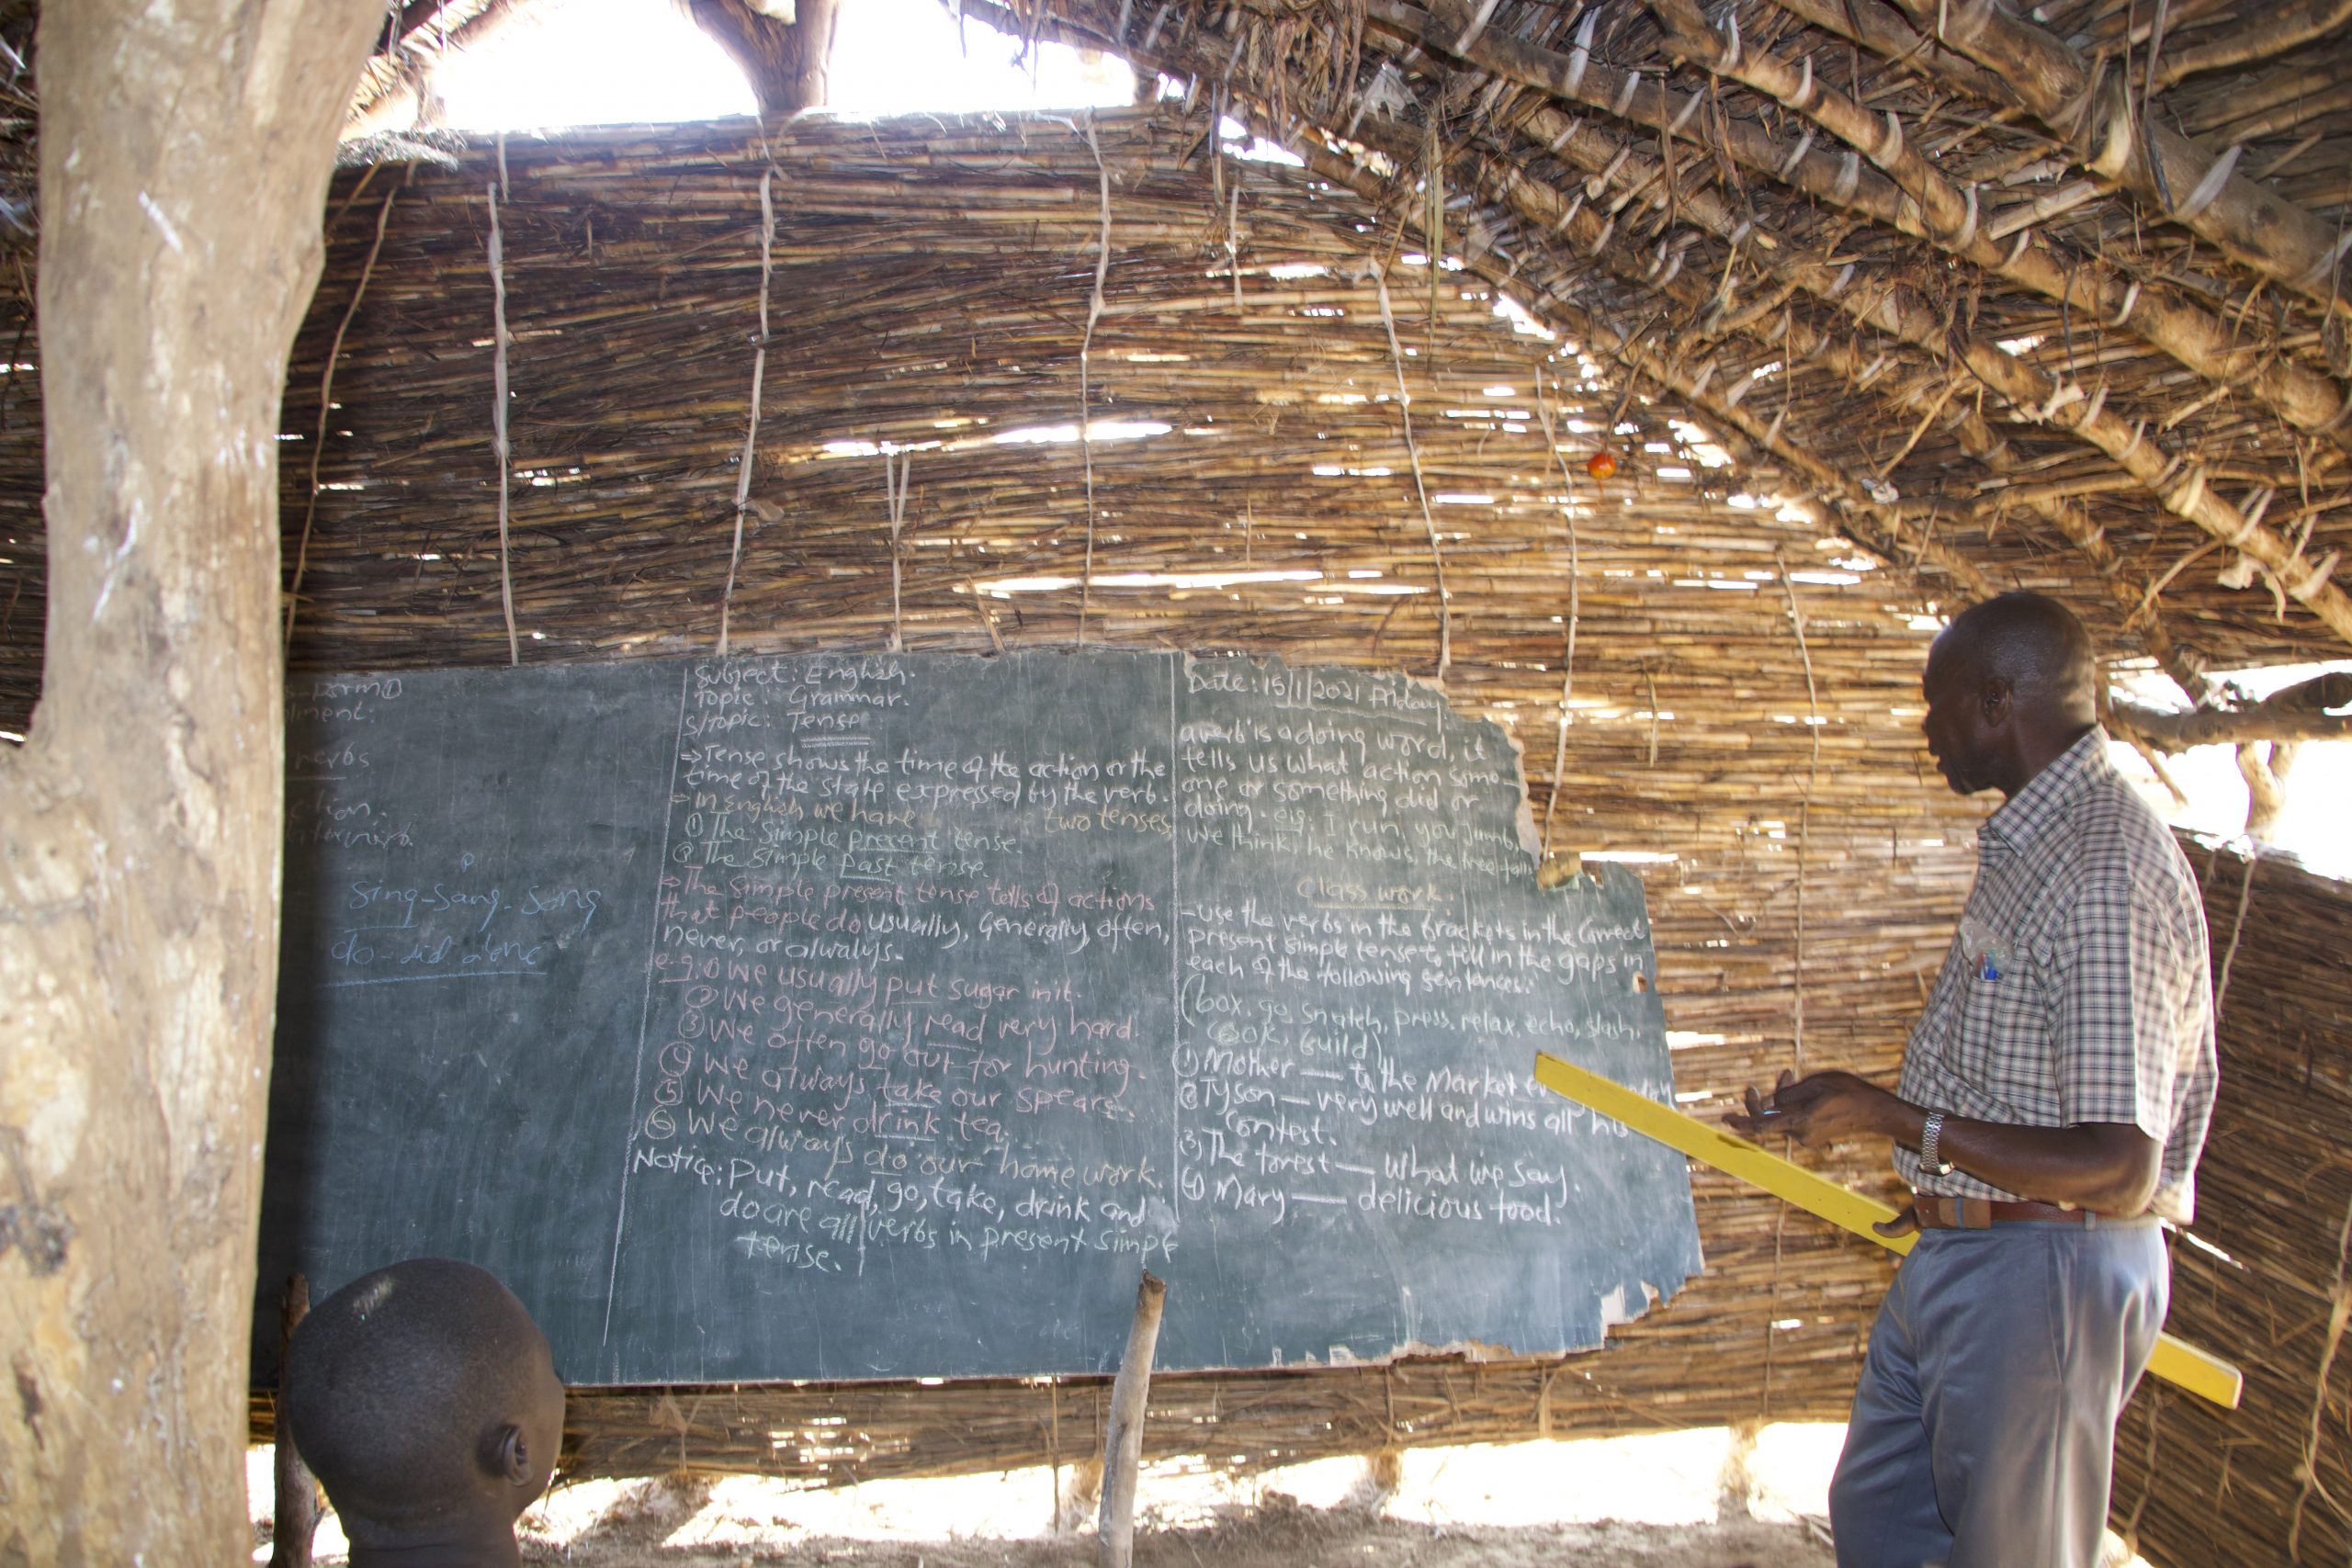 verbs
sing-sang-song
do-did done
Subject: English.
Topic: Grammar.
S/Topic: Tense
⇒Tense shows the time of the action or the
time of the state expressed by the verb.
⇒In English we have two tenses,
① The simple present tense.
② The simple past tense.
⇒The simple present tense tells of actions
that people do usually, Generally, often,
never, or always.
e-g.① We usually put sugar in it.
② We generally read very hard.
③ We often go out for hunting.
④ We always take our spears.
⑤ We never drink tea.
⑥ We always do our home work.
Notice: Put, read, go, take, drink and
do are all verbs in present simple
tense.
Date: 15/1/2021 Friday
a verb is a doing word, it
tells us what action some-
one or something did or
doing. eg: I run, you jump,
we think, he knows, the tree falls
Class work.
-use the verbs in the brackets in the correct
present simple tense to fill in the gaps in
each of the following sentences:
(box, go, snatch, press, relax, echo, slash,
cook, build)
① Mother — to the Market
② Tyson — very well and wins all his
contest.
③ The forest — what we say.
④ Mary — delicious food.